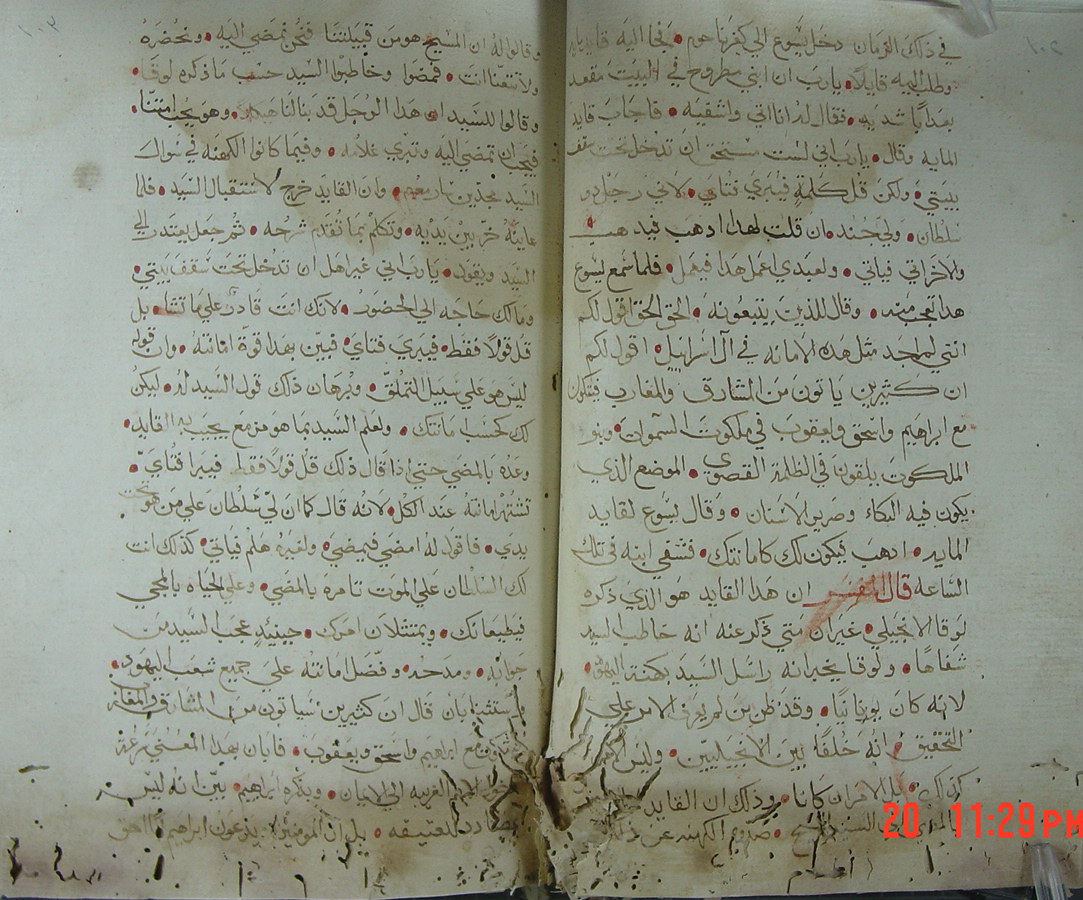 في ذلك الزمان دخل يسوع الي كفرناحوم • فجا اليه قايد مايه
وطلب اليه قايلا • يارب ان ابني مطروح في البيت مقعد
بعذاب شديد • فقال له انا اتي واشفيه • فاجاب قايد
المايه وقال • يارب اني لست مستحق ان تدخل تحت سقف
بيتي • ولكن قل كلمة فيبري فتاي • لاني رجل ذو
سلطان • ولي جند • ان قلت لهذا اذهب فيذهب
والاخر اتي فياتي • ولعبدي اعمل هذا فيعمل • فلما سمع يسوع
هذا تعجب منه • وقال للذين يتبعونه • الحق الحق اقول لكم
انني لم اجد مثل هذه الامانه في آل اسراييل • اقول لكم
ان كثيرين ياتون من المشارق والمغارب فيتكون
مع ابراهيم واسحق ويعقوب في ملكوت السموات • وبنو
الملكوت يلقون في الظلمة القصوي • الموضع الذي
يكون فيه البكاء وصرير الاسنان • وقال يسوع لقايد
المايه • اذهب فيكون لك كامانتك • فشفي ابنه في تلك
الساعه قال المفسر ان هذا القايد هو الذي ذكره
لوقا الانجيلي • غير ان متي ذكر عنه انه خاطب السيد
شفاها • ولوقا يخبر انه راسل السيد بكهنة اليهود •
لانه كان يونانيا • وقد ظن من لم يرى الامر علي
التحقيق • انه خلفا بين الانجيليين • وليس الامر
كذلك • بل الامران كانا • وذلك ان القايد
السيد المسيح • ضدهم الكهنه عن ذلك
وقالوا له ان المسيح هو من قبيلتنا فنحن نمضي اليه • ونحضره
ولا تتعنا انت • فمضوا وخاطبوا السيد حسب ما ذكره لوقا •
وقالوا للسيد ان هذا الرجل قد بنا لنا هيكلا • وهو يحب امتنا •
فيجب ان تمضي اليه وتبري غلامه • وفيما كانوا الكهنه في سوال
السيد مجدين سار معهم • وان القايد خرج لاستقبال السيد • فلما
عاينه خر بين يديه • وتكلم بما تقدم شرحه • ثم جعل يعتذر الي
السيد ويقول • يارب اني غير اهل ان تدخل تحت سقف بيتي •
وما لك حاجه الي الحضور • لانك انت قادر علي ما تشا • بل
قل قولا فقط • فيبري فتاي • فبين بهذا قوة امانته • وان قوله
ليس هو علي سبيل التملق • وبرهان ذلك قول السيد له • ليكن
لك كحسب امانتك • ولعلم السيد بما هو مزمع يجيب به القايد •
وعده بالمضي حتي اذا قال ذلك قل قولا فقط فيبرا فتاي •
تشتهر امانته عند الكل • لانه قال كما ان لي سلطان علي من هو تحت
يدي • فاقول له امضي فيمضي • ولغيره هلم فياتي • كذلك انت
لك السلطان علي الموت تامره بالمضي • وعلي الحياه بالمجي
فيطيعانك • ويمتثلان امرك • حينيذ عجب السيد من
جوابه • ومدحه • وفضل امانته علي جميع شعب اليهود •
واستثنا بان قال ان كثيرين سياتون من المشارق والمغارب
ويتكون مع ابراهيم واسحق ويعقوب • فابان بهذا المعني عن
دخول الامم الغريبه الي الايمان • وبذكره ابراهيم • بين انه ليس
بمضادد للعتيقه • بل ان المومنين يدعون ابراهيم